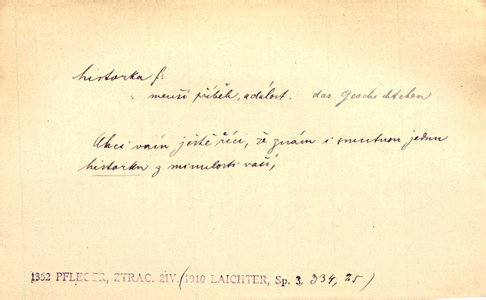 historka f.
menší příběh, událost. das Geschichtchen
Chci vám ještě říci, že znám i smutnou jednu
historku z minulosti vaší,
1862 PFLEGER, ZTRAC. ŽIV. (1910 LAICHTER, Sp. 3. 334, 25)